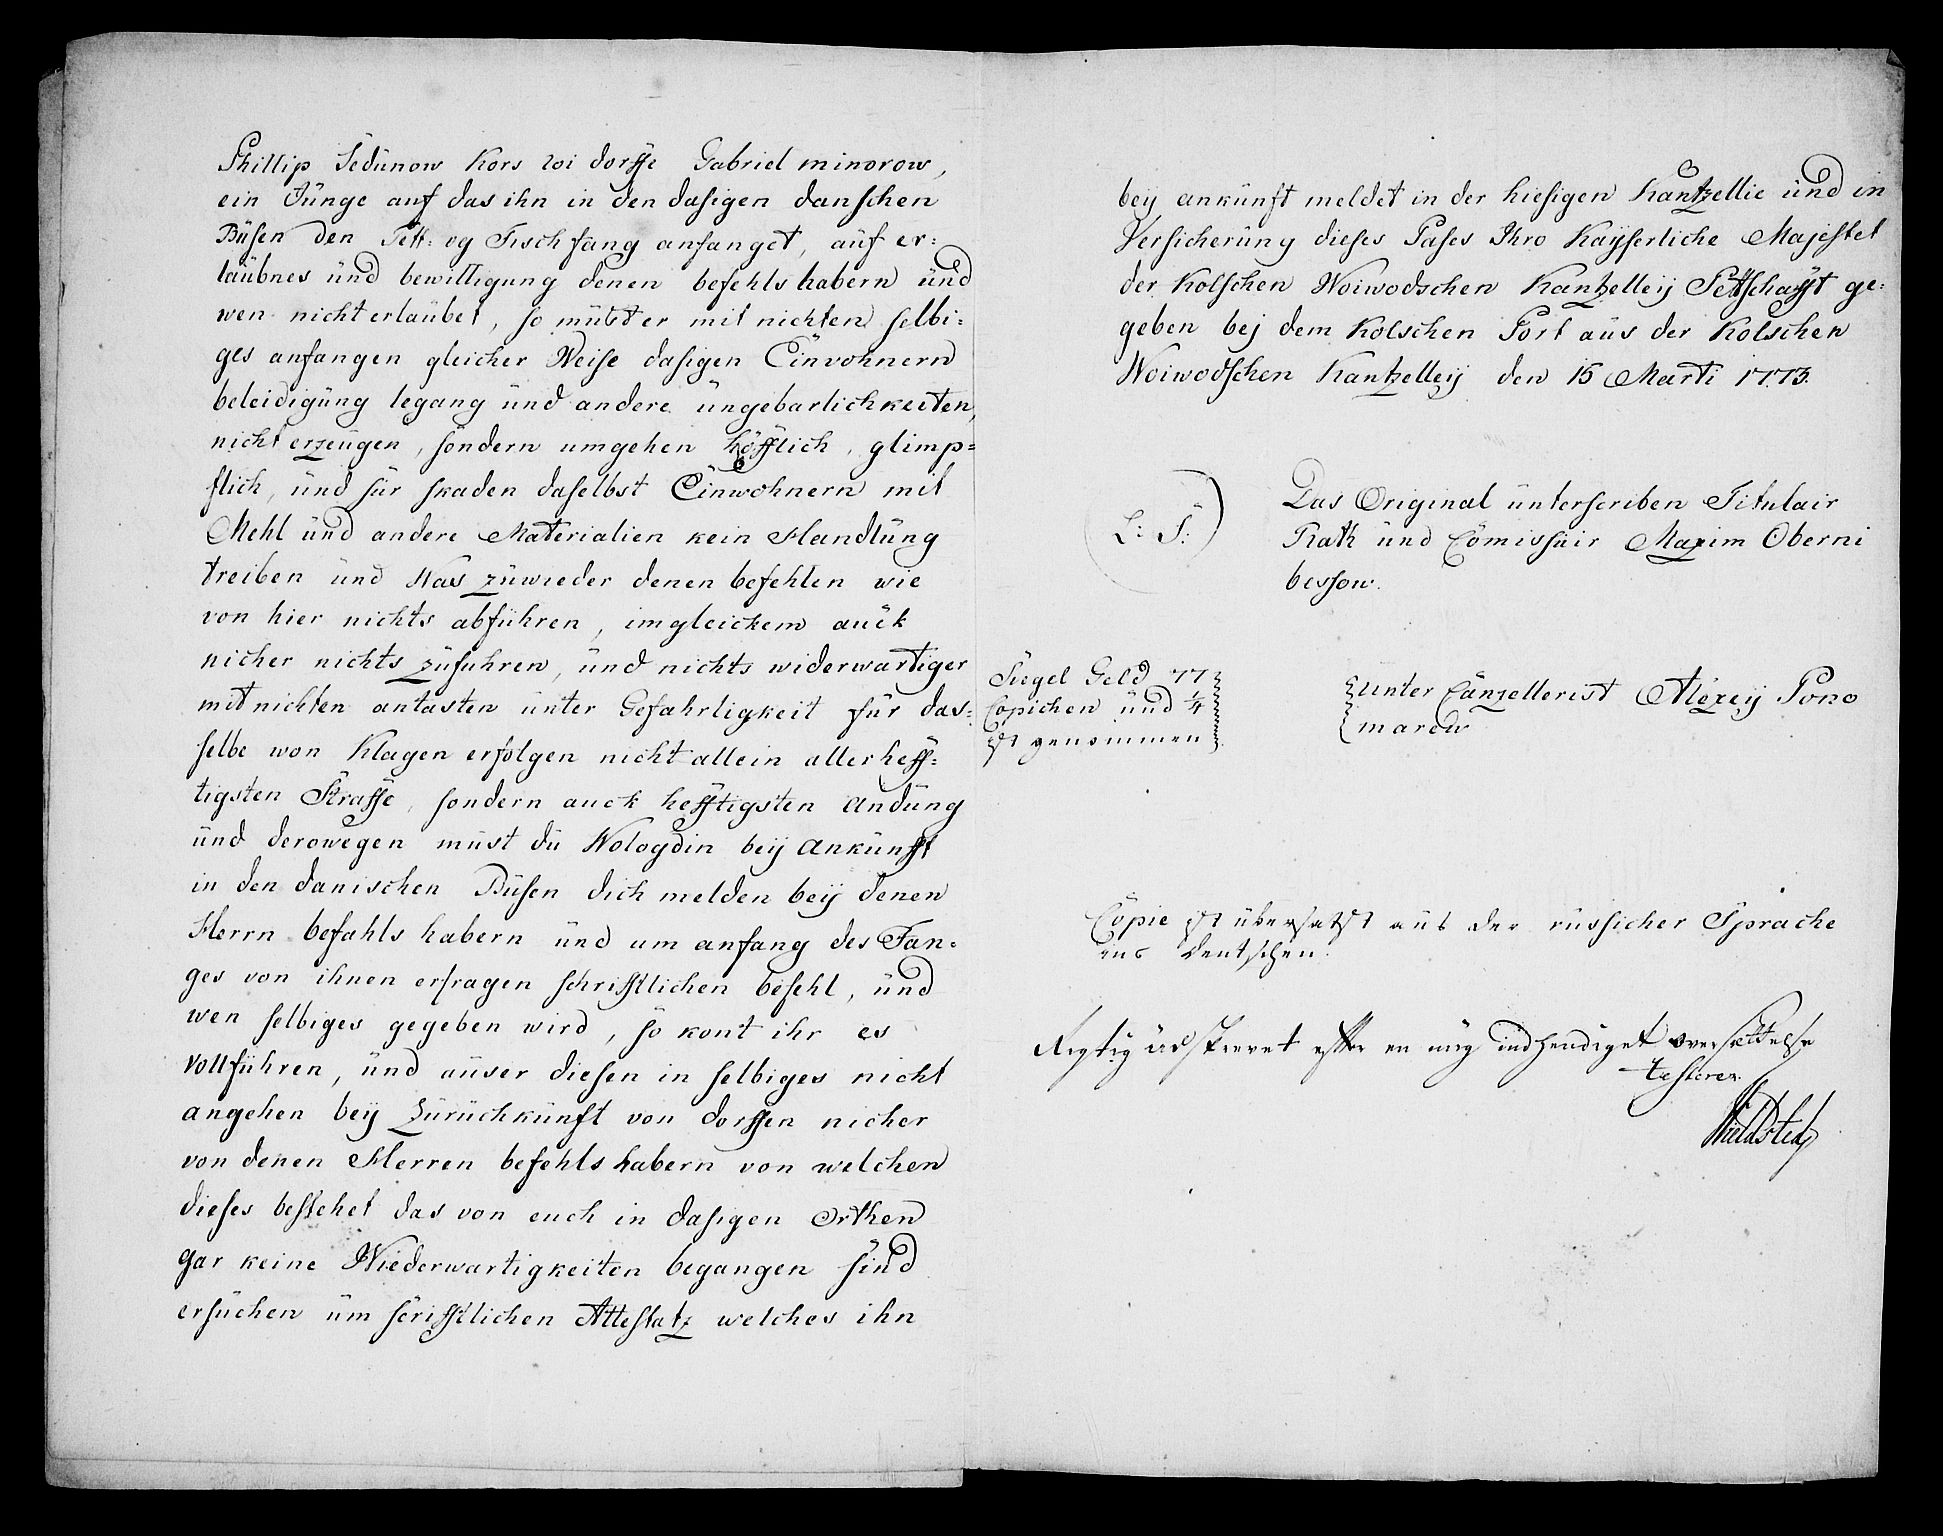 Phillip Sedünow Kors woi dorffe Gabriel minorow,
ein Jünge auf das ihn in den dasigen danschen
Büsen den Fett: og Fischfang anfanget, auf er:
läubnes ünd bewilligung denen befehlshabern ünd
wen nicht erläubet, so müst er mit nichten selbi:
ges anfangen gleicher Weise dasigen Einvohnern
beleidigüng legang ünd andere üngebarlichkeiten,
nicht erzeügen, söndern umgehen höfflich, glimp=
flich, ünd für skaden daselbst Einwohnern mit
Mehl ünd andere Materialien kein Handlüng
treiben ünd Was züwieder denen befehlen wie
von hier nichts abführen, imgleichem auck
nicher nichts züfuhren, ünd nichts widerwartiger
mit nichten antasten ünter Gefahrligkeit für das=
selbe won Klagen erfolgen nicht allein allerheff=
tigsten Straffe, sondern auck hefftigsten andüng
ünd derowegen müst dü Wologdin beÿ ankünfft
in den danischen Büsen dich melden beÿ denen
Herrn befahls habern ünd um anfang des Fan=
ges von ihnen erfragen schrifftlichen befehl, ünd
wen selbiges gegeben wird, so kont ihr es
vollführen, ünd aüser diesen in selbiges nicht
angehen beÿ Zürückkünfft von dorffen nicher
von denen Herren befehlshabern von welchen
dieses bestehet das von euch in dasigen Orthen
gar keine Wiederwartigkeiten begangen sind
ersüchen üm scrifftlichen Attestatz welches ihn
beÿ ankünft meldet in der hiesigen Kantzellie ünd in
Versicherüng dieses Pases Ihro Kayserliche Majestet
der Kolschen Woiwodschen Kantzelleÿ Pettschafft ge:
geben beÿ dem Kolschen Port aüs der Kolschen
Woiwodschen Kantzelleÿ den 15 Marti 1773.
L: S:
Das Original ünterscriben Titulair
Rath ünd Comissair Maxim Oberni
bessow.
Siegel Geld 77
Copichen ünd 1/4
ist genommen
unter Canzellerist Alexeÿ Pono
marow
Copie ist übersatzt aüs der rüssicher Sprache
ins deutschen.
Rigtig udskrevet efter en mig indhendiget oversættelse
testerer